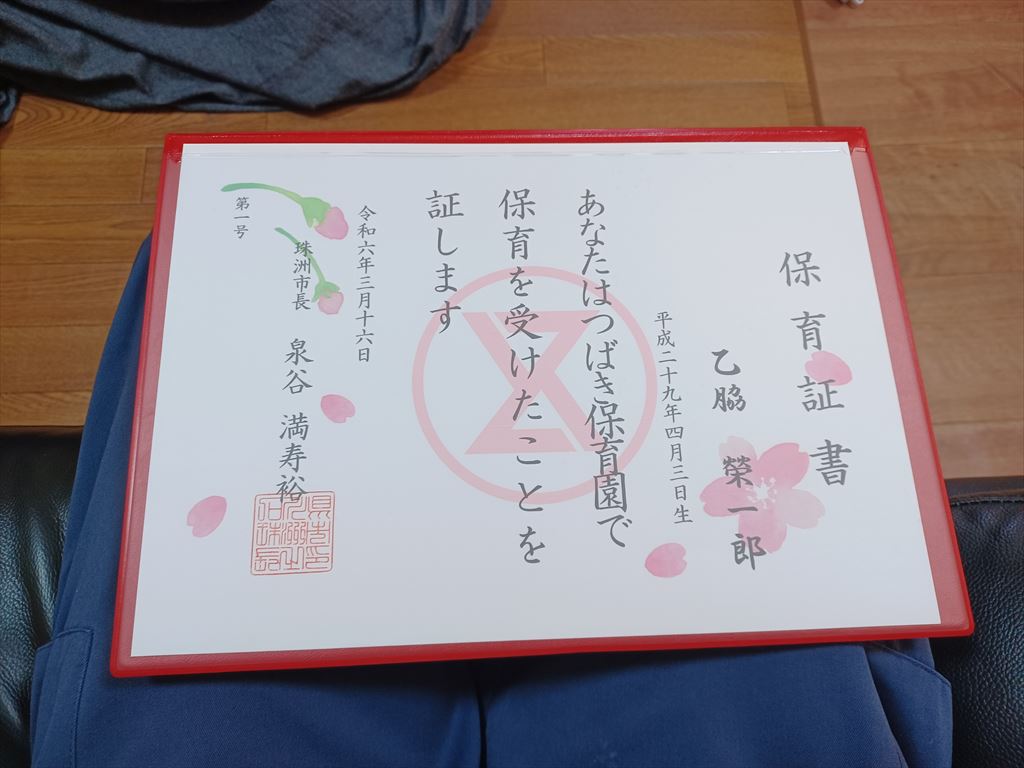 保育証書
乙脇 榮一郎
平成二十九年四月三日生
あなたはつばき保育園で
保育を受けたことを
証します
令和六年三月十六日
珠洲市長 泉谷 満寿裕
第一号